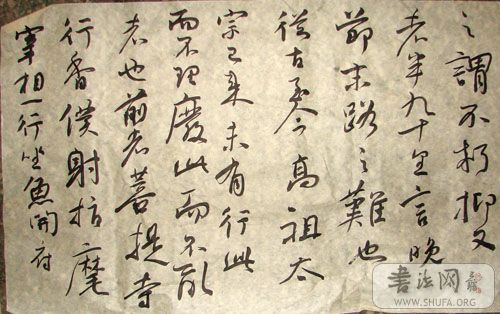 之謂不朽抑又
者半九十里言晚
節末路之難也
從古至今高祖太
宗已来未有行此
而不理廢此而不乱
者也前者菩提寺
行香僕射指麾
宰相一行坐魚開府
書法网
WWW.SHUFA.ORG